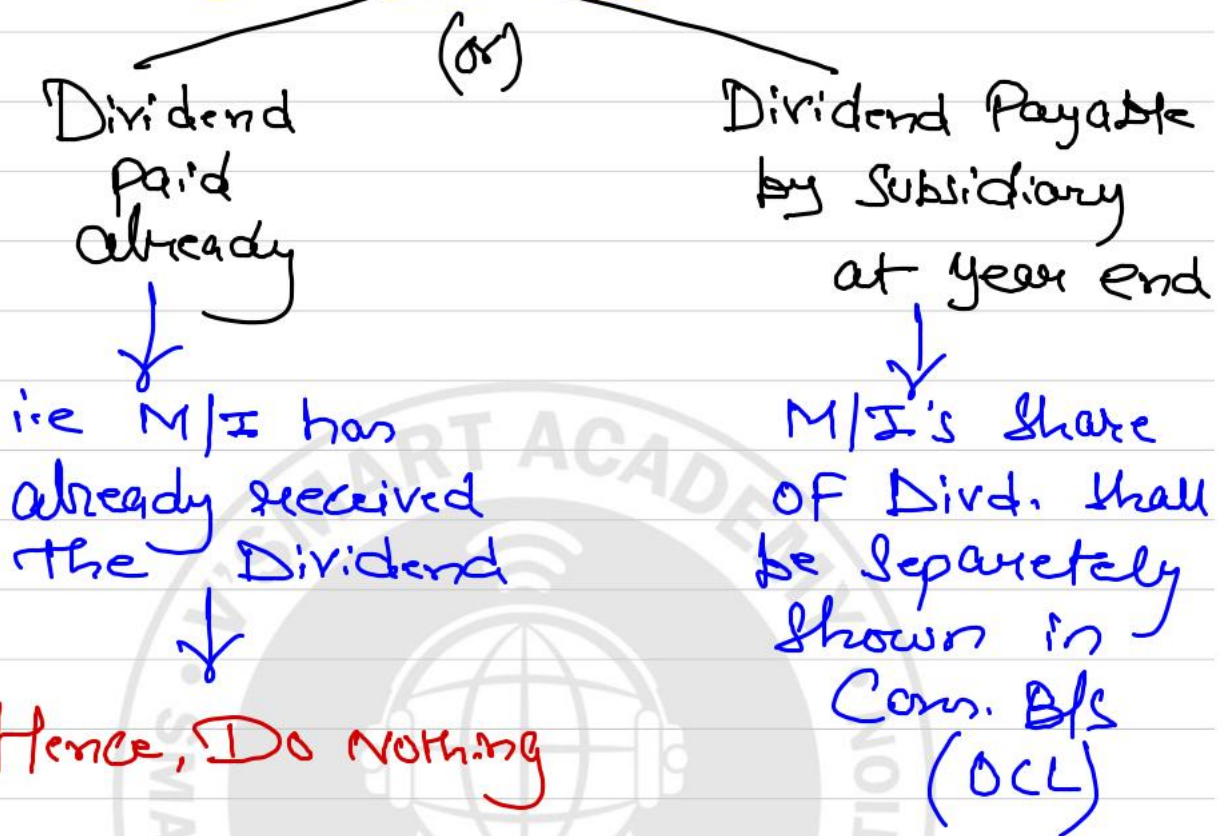 (or)
Dividend
Paid
already
i.e M/I has
already received
the Dividend
Hence, Do Nothing
Dividend Payable
by Subsidiary
at year end
M/I's Share
OF Divd. Shall
be Separetely
Shown in
Con. B/s
(OCL)
V'SMART ACADEMY